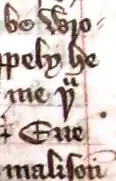 be wro
ppely he
me yͭ
Eue
malison